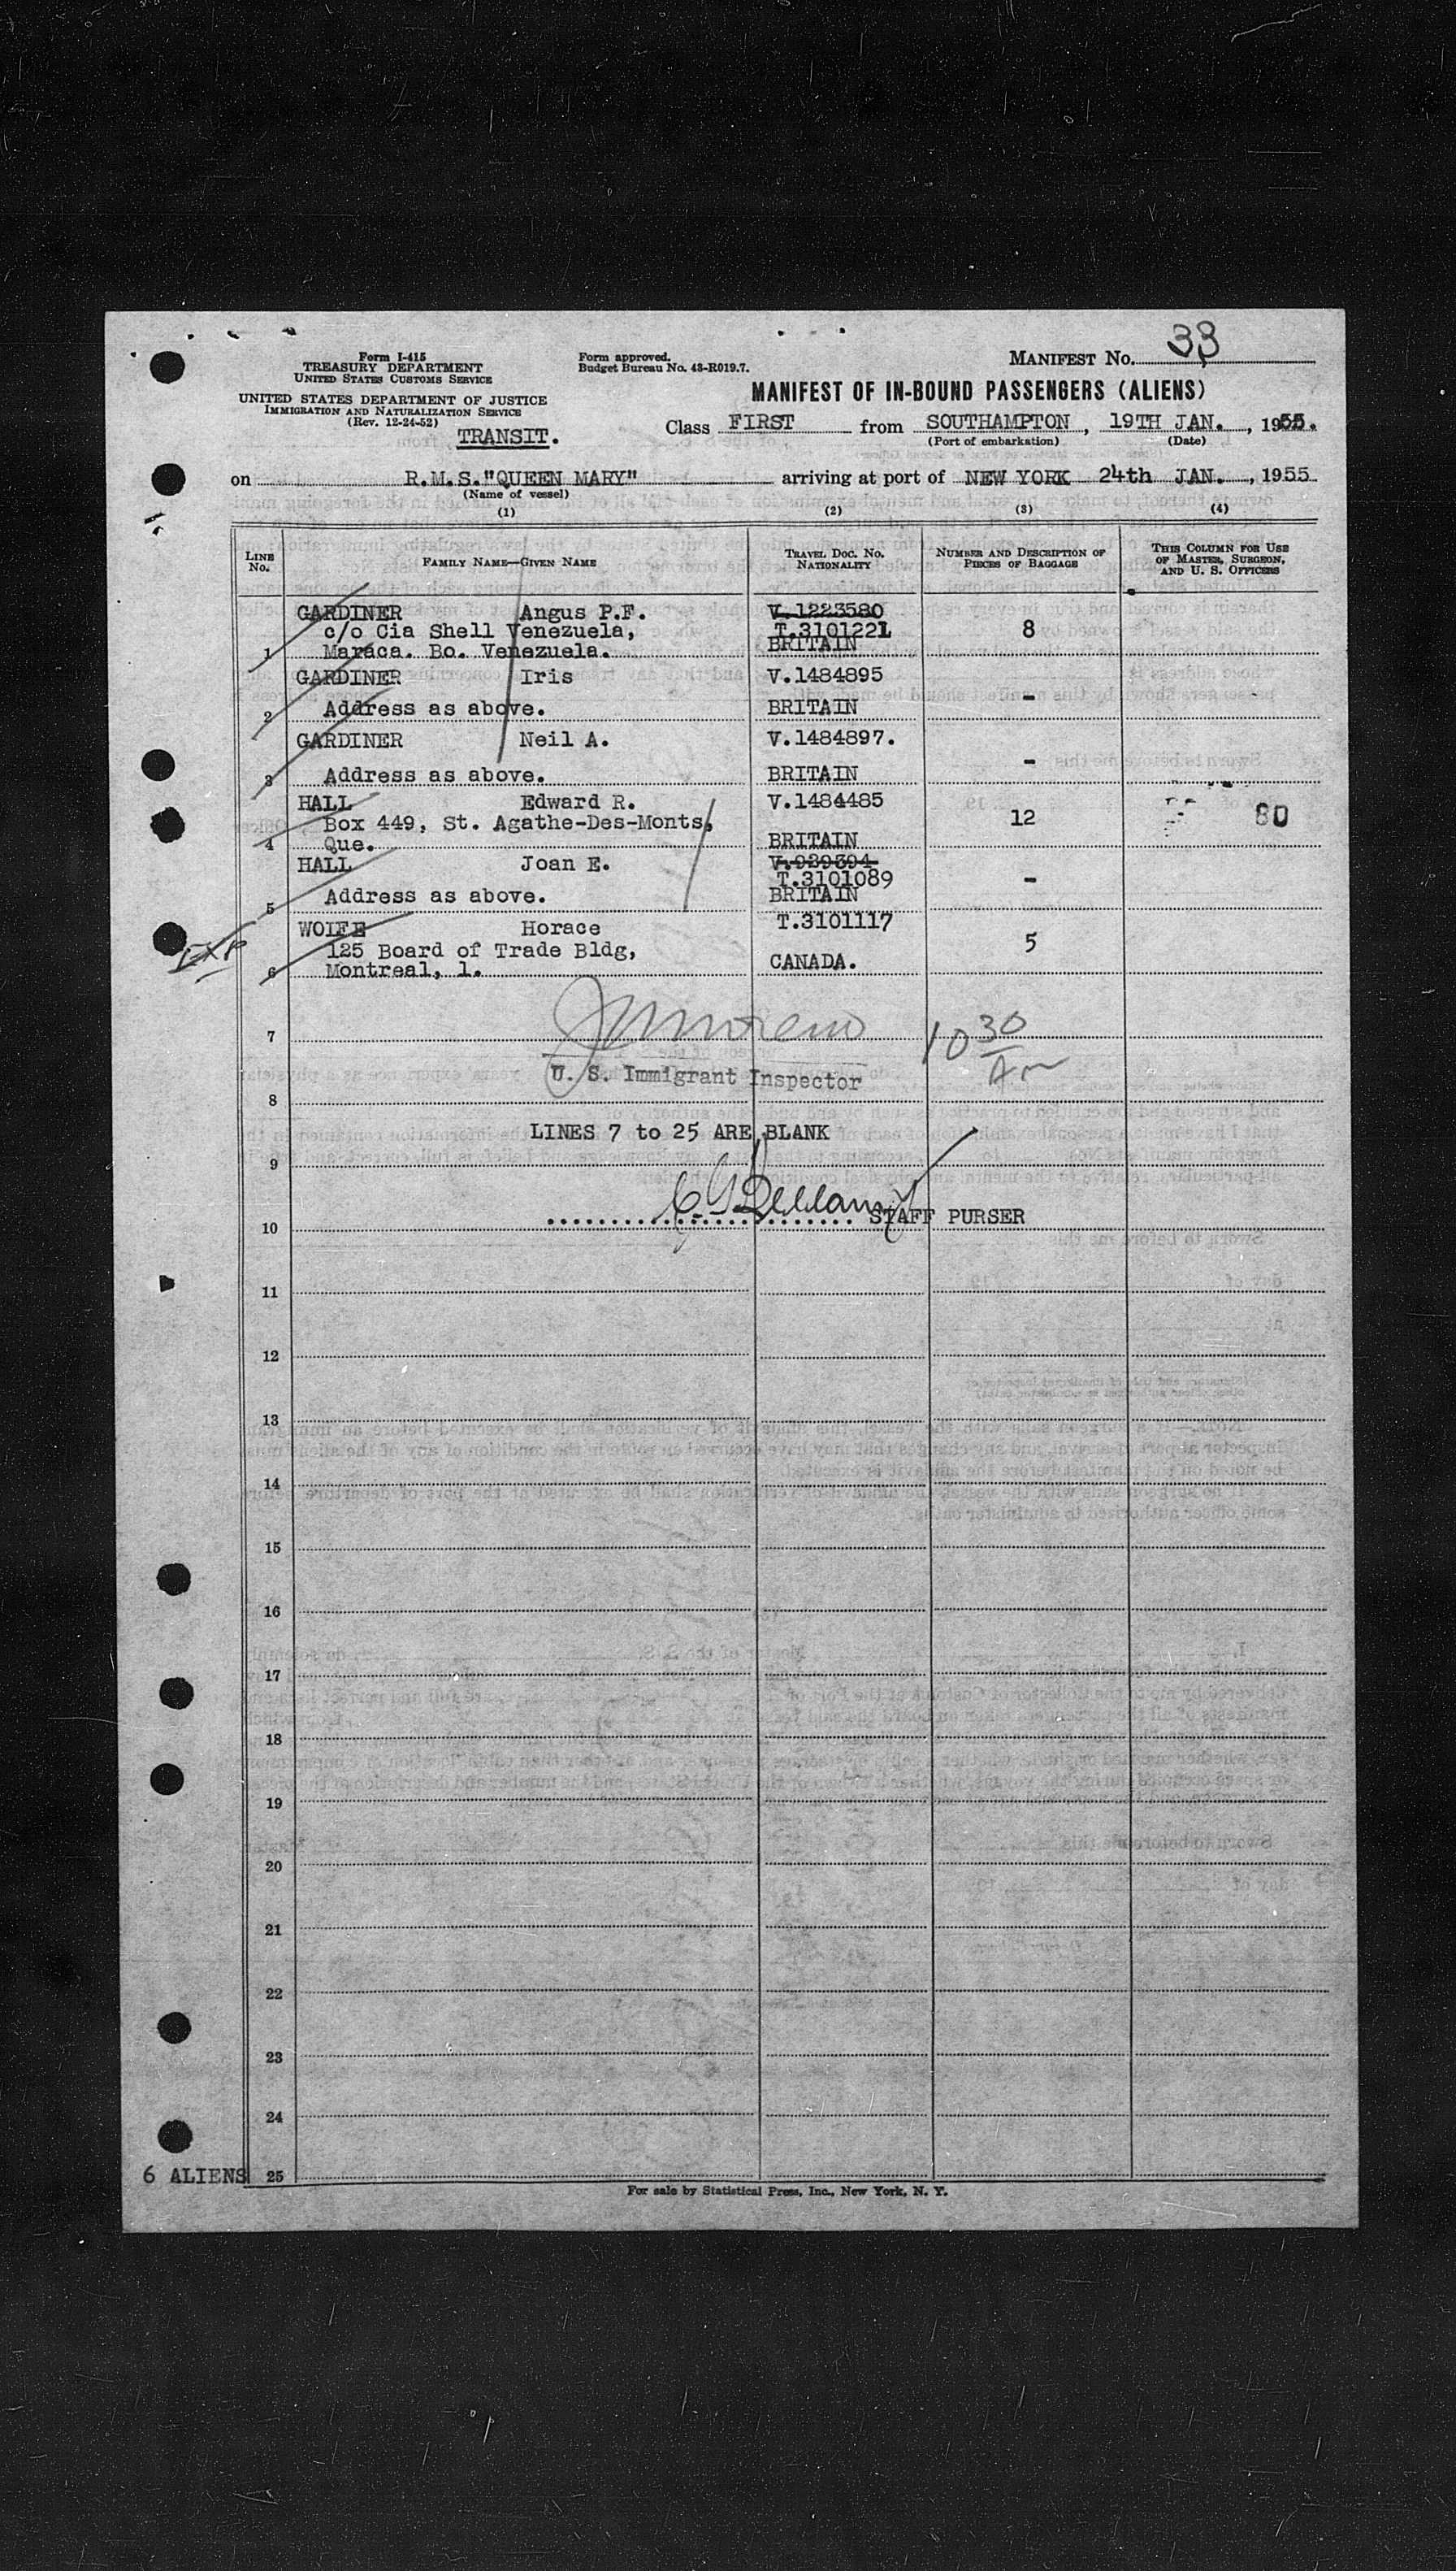 Form I-415
TREASURY DEPARTMENT
UNITED STATES CUSTOMS SERVICE
UNITED STATES DEPARTMENT OF JUSTICE
IMMIGRATION AND NATURALIZATION SERVICE
(Rev. 12-24-52)
TRANSIT.
Form approved.
Budget Bureau No. 43-R019.7.
MANIFEST NO. 33
MANIFEST OF IN-BOUND PASSENGERS (ALIENS)
Class FIRST from SOUTHAMPTON, 19TH JAN., 1955.
(Port of embarkation) (Date)
on R.M.S."QUEEN MARY" arriving at port of NEW YORK 24th JAN., 1955
(Name of vessel)
(1) (2) (3) (4)
LINE NO. FAMILY NAME—GIVEN NAME TRAVEL DOC. NO. NATIONALITY NUMBER AND DESCRIPTION OF PIECES OF BAGGAGE THIS COLUMN FOR USE OF MASTER, SURGEON, AND U. S. OFFICERS
GARDINER Angus P.F. V.1223580
c/o Cia Shell Venezuela, T.3101221 8
1 Maraca. Bo. Venezuela. BRITAIN
GARDINER Iris V.1484895
2 Address as above. BRITAIN -
GARDINER Neil A. V.1484897.
3 Address as above. BRITAIN -
HALL Edward R. V.1484485
Box 449, St. Agathe-Des-Monts, 12 80
4 Que. BRITAIN
HALL Joan E. V.939394
T.3101089 -
5 Address as above. BRITAIN
WOLFE Horace T.3101117
125 Board of Trade Bldg, 5
6 Montreal, 1. CANADA.
7 10 30 Am
U. S. Immigrant Inspector
8
LINES 7 to 25 ARE BLANK
9
STAFF PURSER
10
11
12
13
14
15
16
17
18
19
20
21
22
23
24
6 ALIENS 25
For sale by Statistical Press, Inc., New York, N. Y.